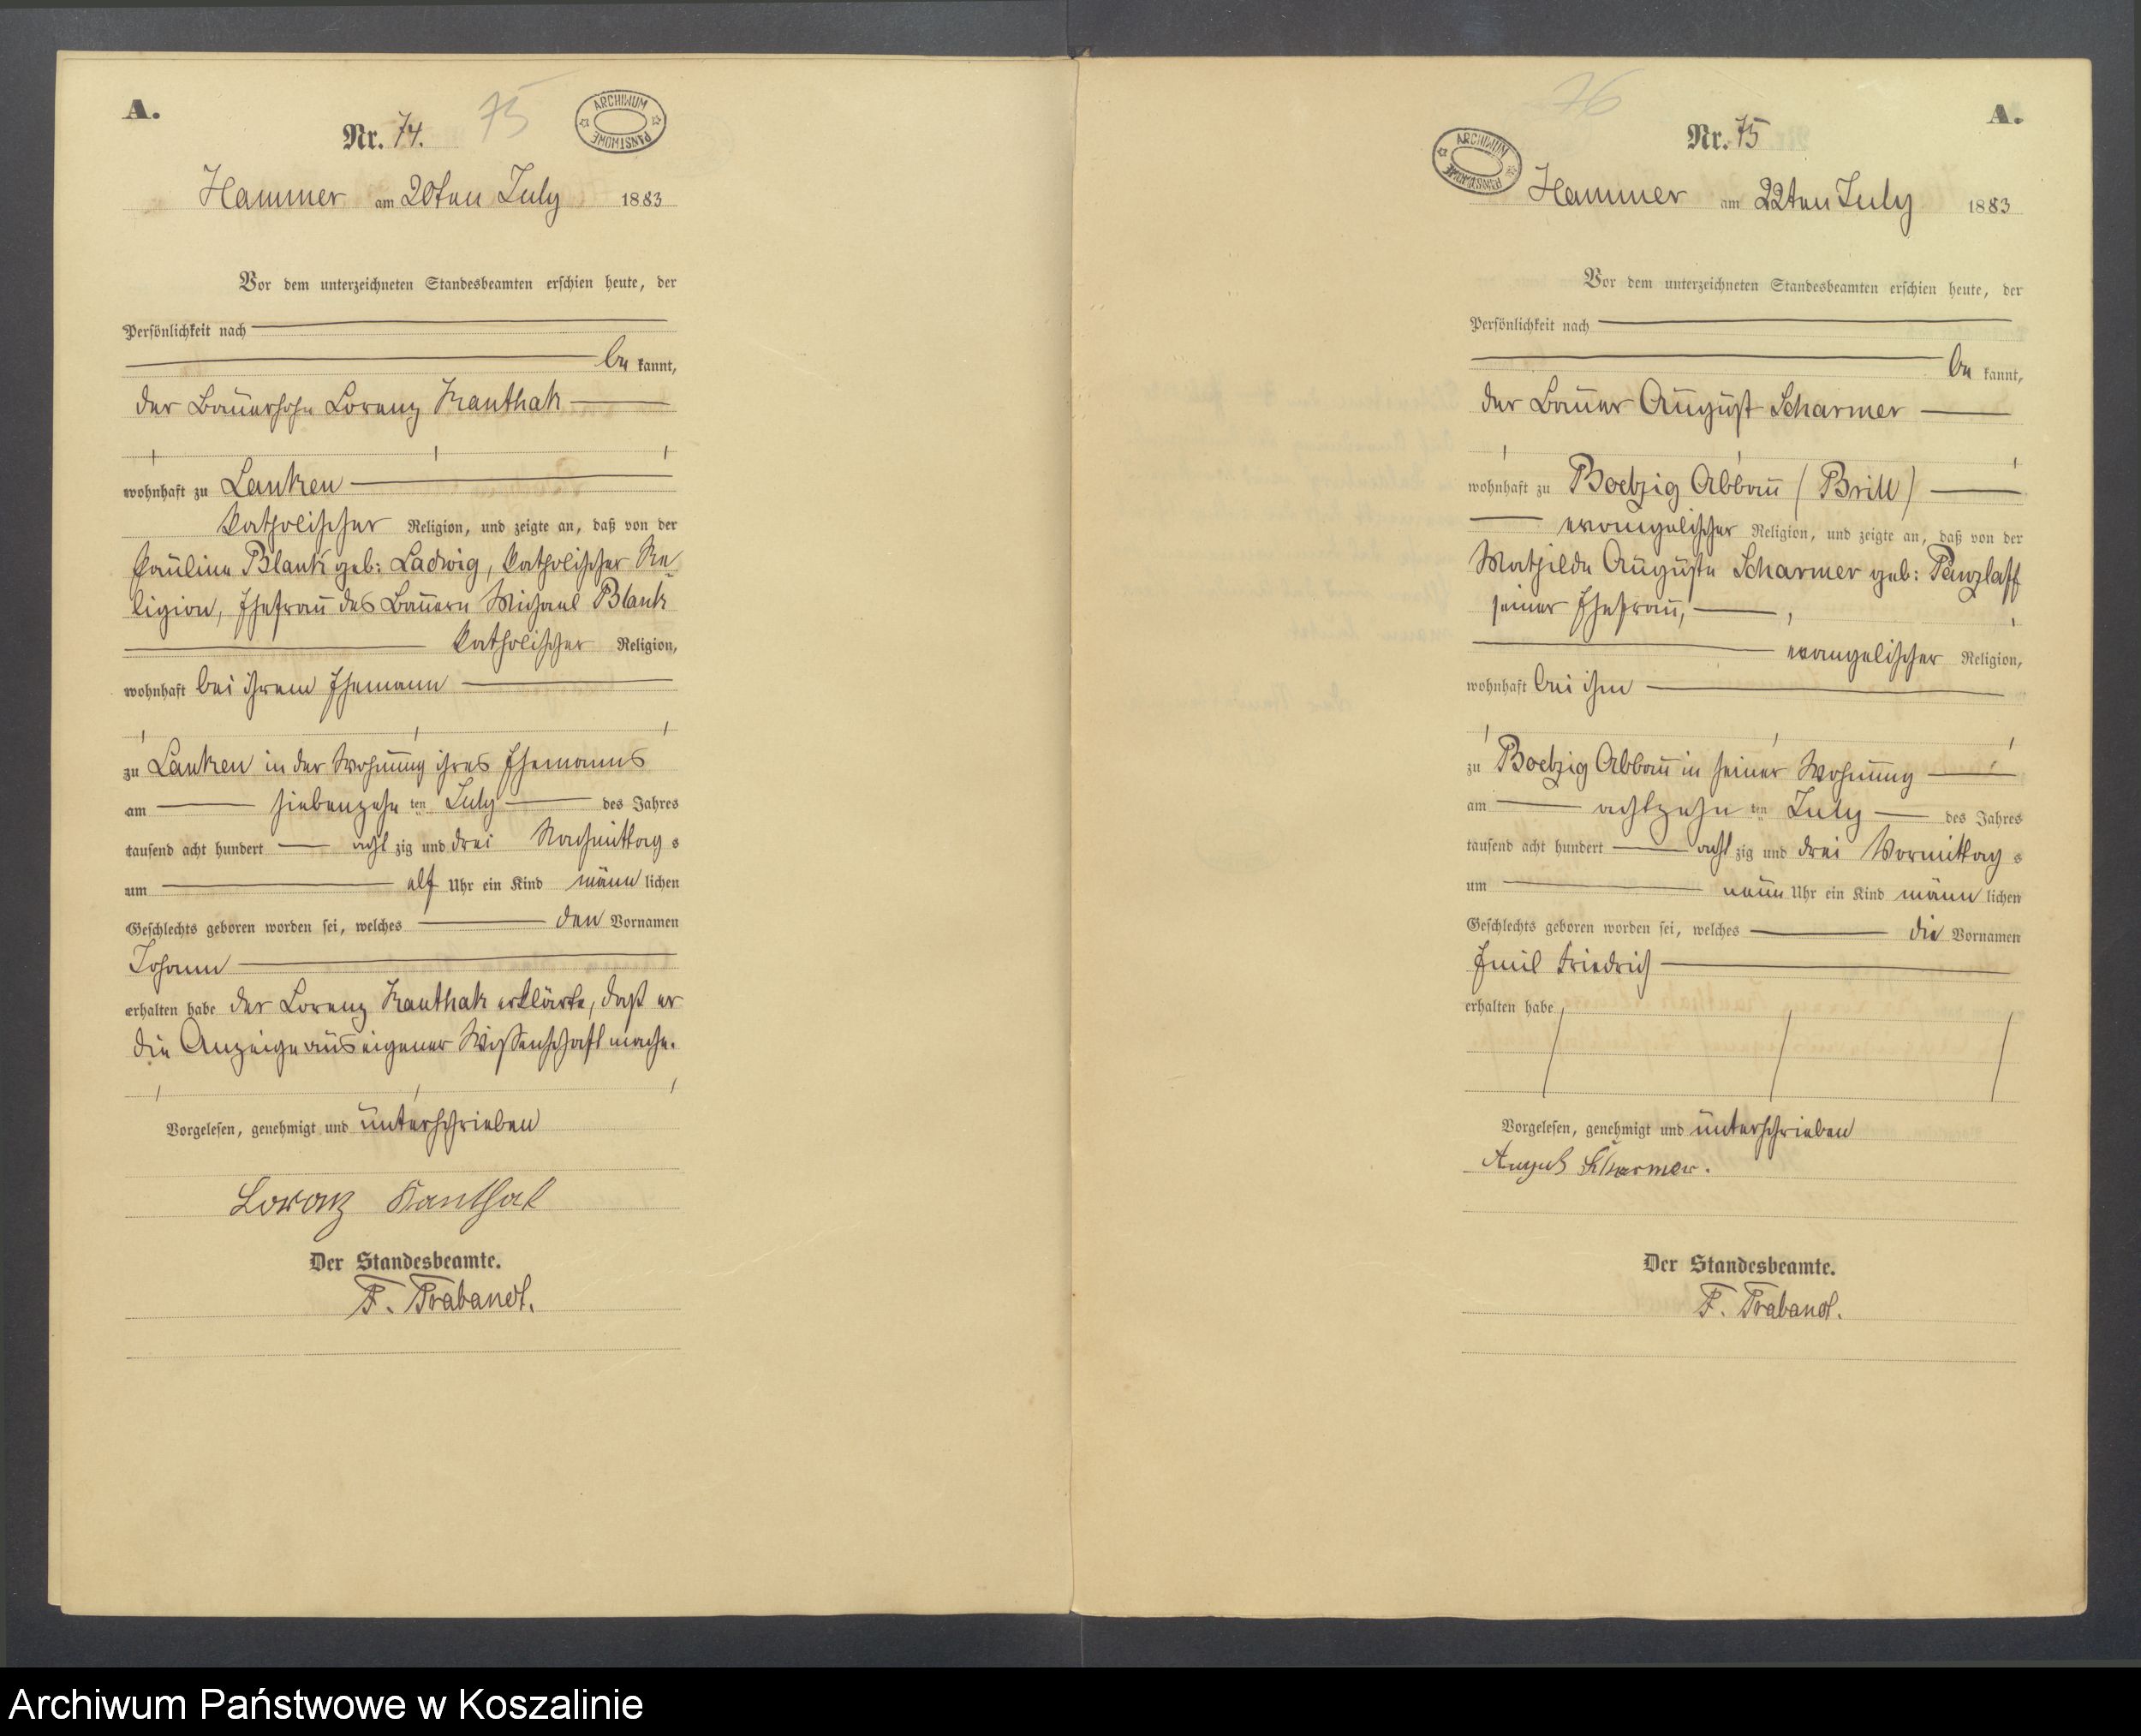 A.
Nr. 74.
75
ARCHIWUM PAŃSTWOWE
Hammer am 20ten July 1883
Vor dem unterzeichneten Standesbeamten erschien heute, der
Persönlichkeit nach
be kannt,
der Bauersohn Lorenz Kanthak
wohnhaft zu Lanken
katholischer Religion, und zeigte an, daß von der
Pauline Blank geb: Ladwig, katholischer Re
ligion, Ehefrau des Bauern Michael Blank
katholischer Religion,
wohnhaft bei ihrem Ehemann
zu Lanken in der Wohnung ihres Ehemanns
am siebenzehn ten July des Jahres
tausend acht hundert acht zig und drei Nachmittag s
um elf Uhr ein Kind männ lichen
Geschlechts geboren worden sei, welches den Vornamen
Johann
erhalten habe der Lorenz Kanthak erklärte, daß er
die Anzeige aus eigener Wissenschaft mache.
Vorgelesen, genehmigt und unterschrieben
Lorenz Kanthak
Der Standesbeamte.
F. Trabandt.
76
A.
Nr. 75
ARCHIWUM PAŃSTWOWE
Hammer am 22ten July 1883
Vor dem unterzeichneten Standesbeamten erschien heute, der
Persönlichkeit nach
be kannt,
der Bauer August Scharmer
wohnhaft zu Boetzig Abbau (Brill)
evangelischer Religion, und zeigte an, daß von der
Mathilde Auguste Scharmer geb: Panzlaff
seiner Ehefrau,
evangelischer Religion,
wohnhaft bei ihm
zu Boetzig Abbau in seiner Wohnung
am achtzehn ten July des Jahres
tausend acht hundert acht zig und drei Vormittag s
um neun Uhr ein Kind männ lichen
Geschlechts geboren worden sei, welches die Vornamen
Emil Friedrich
erhalten habe
Vorgelesen, genehmigt und unterschrieben
August Scharmer.
Der Standesbeamte.
F. Trabandt.
Archiwum Państwowe w Koszalinie